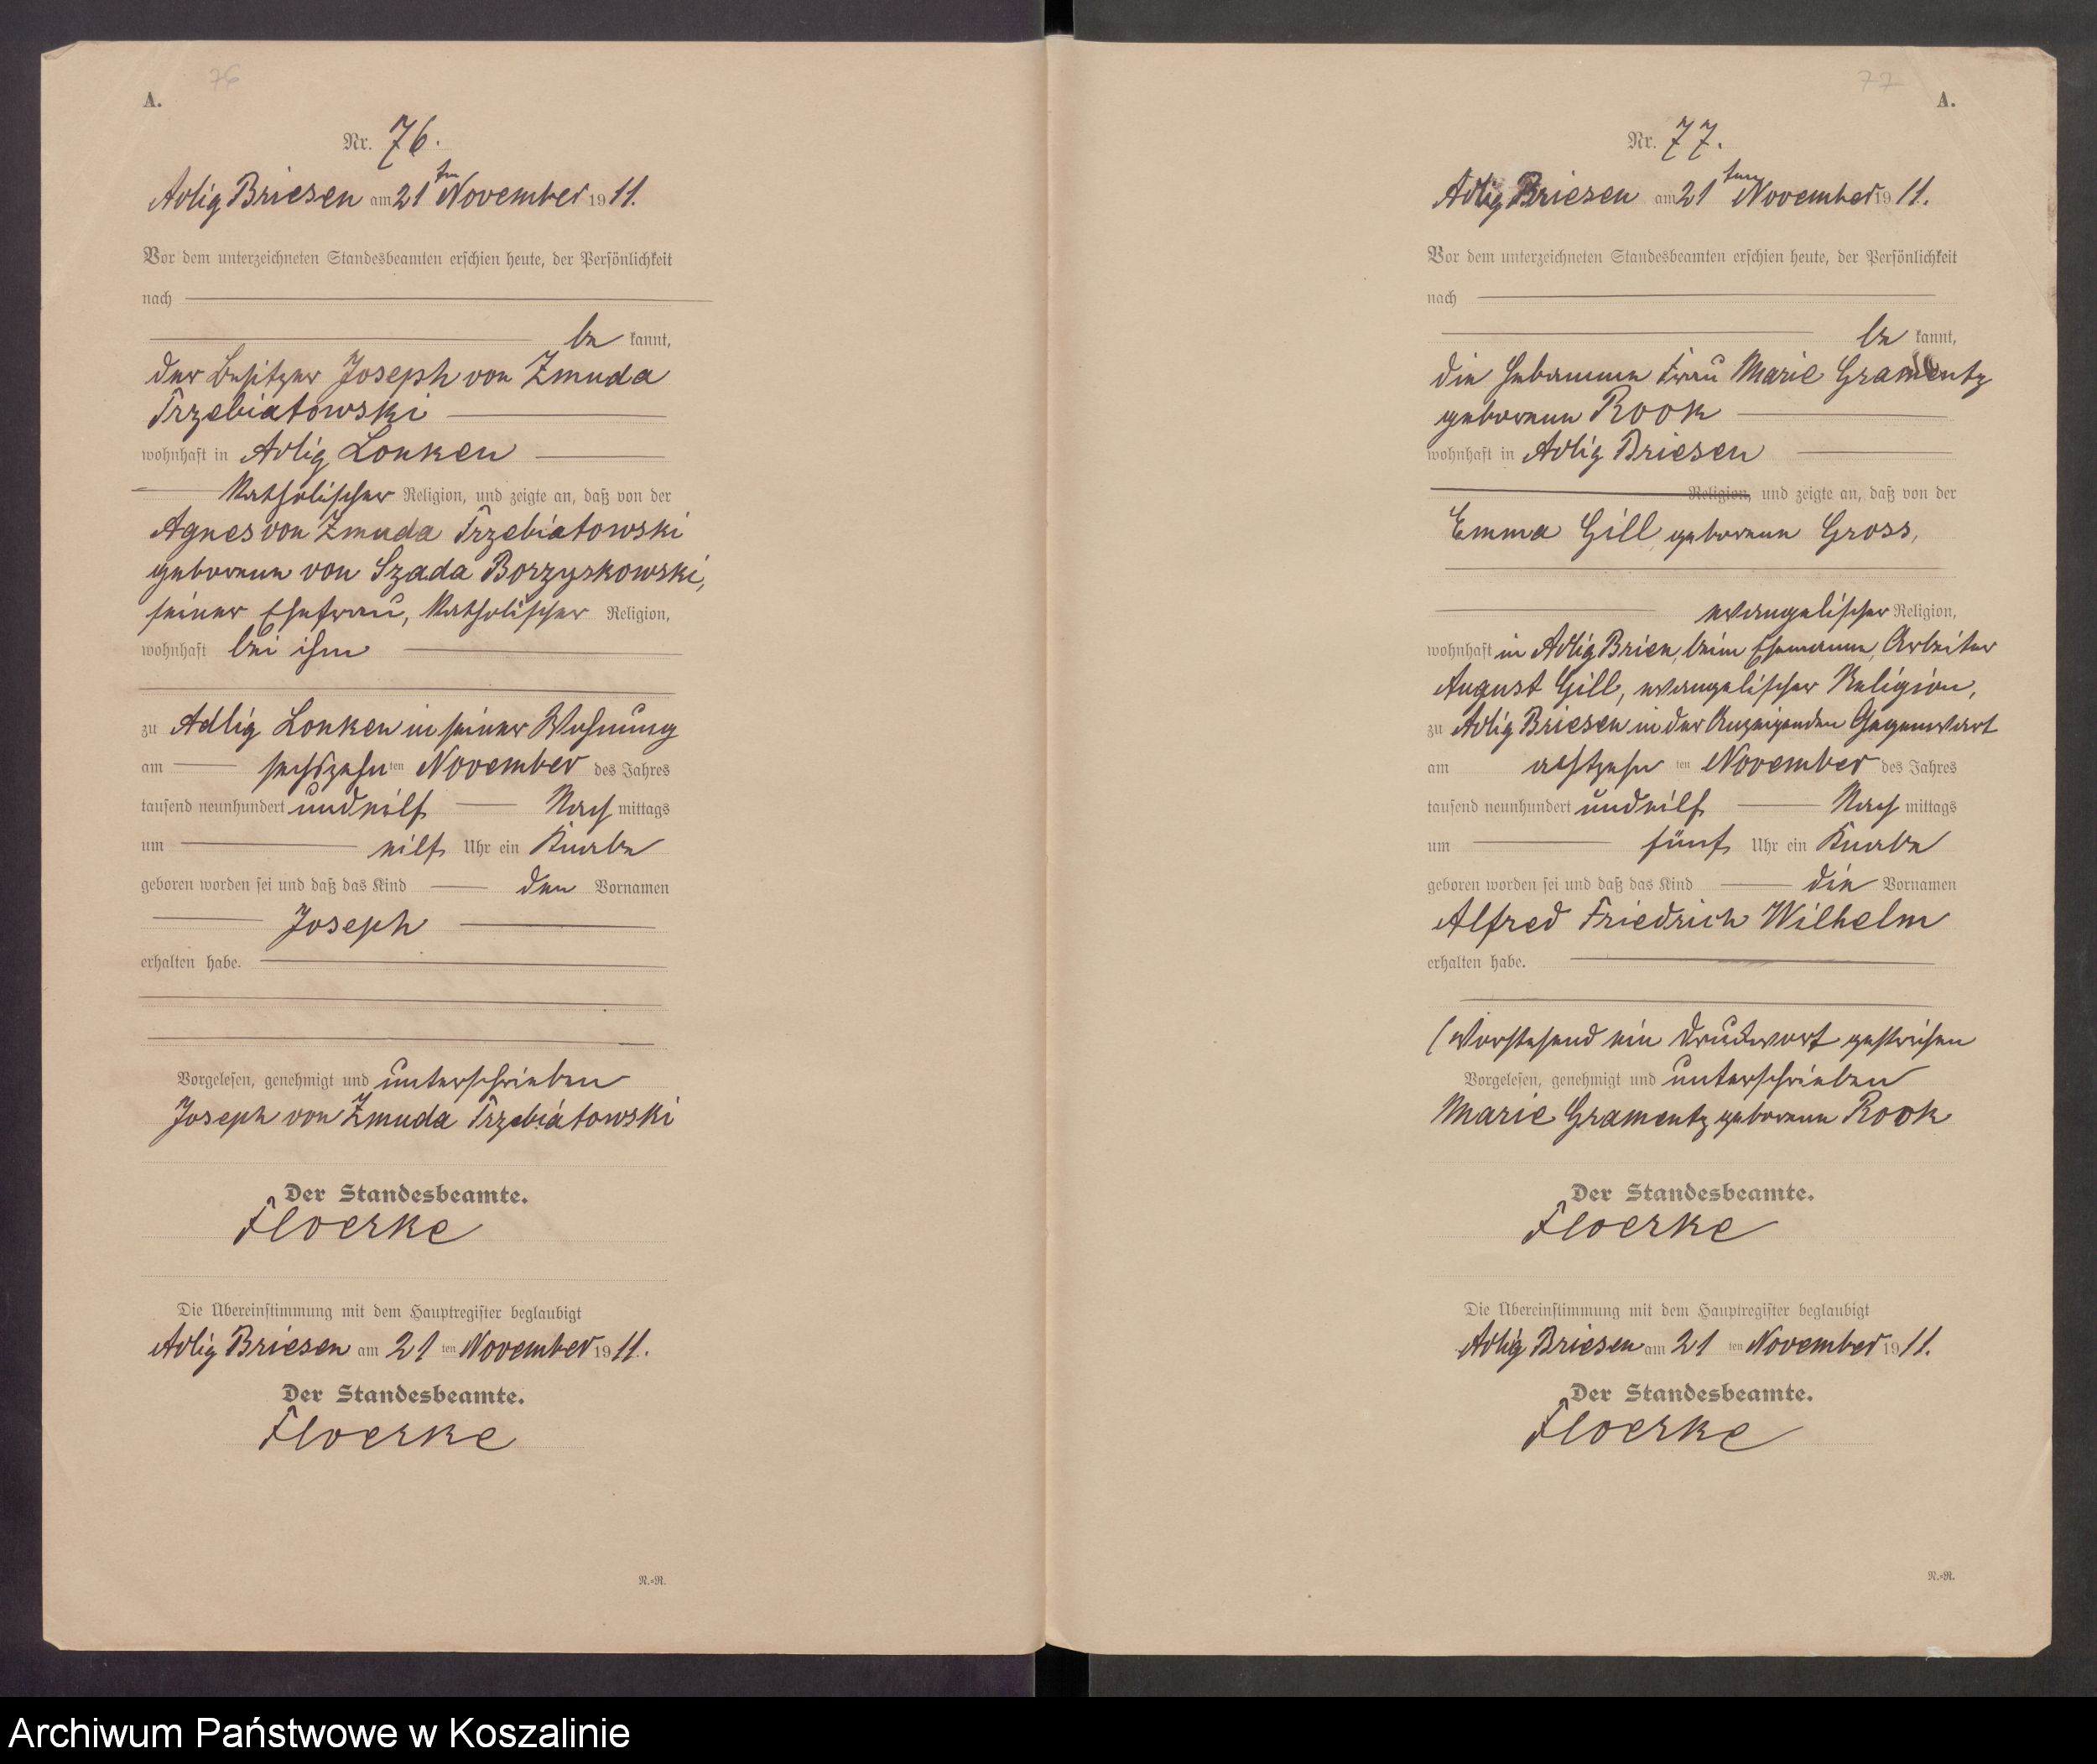 76
A.
Nr. 76.
Adlig Briesen am 21ten November 1911.
Vor dem unterzeichneten Standesbeamten erschien heute, der Persönlichkeit
nach
be kannt,
der Besitzer Joseph von Zmuda
Trzebiatowski
wohnhaft in Adlig Lonken
katholischer Religion, und zeigte an, daß von der
Agnes von Zmuda Trzebiatowski
geborene von Szada Borzyskowski,
seiner Ehefrau, katholischer Religion,
wohnhaft bei ihm
zu Adlig Lonken in seiner Wohnung
am sechszehnten November des Jahres
tausend neunhundert und eilf Nach mittags
um eilf Uhr ein Knabe
geboren worden sei und daß das Kind den Vornamen
Joseph
erhalten habe.
Vorgelesen, genehmigt und unterschrieben
Joseph von Zmuda Trzebiatowski
Der Standesbeamte.
Floerke
Die Übereinstimmung mit dem Hauptregister beglaubigt
Adlig Briesen am 21 ten November 1911.
Der Standesbeamte.
Floerke
N.-R.
77
A.
Nr. 77.
Adlig Briesen am 21ten November 1911.
Vor dem unterzeichneten Standesbeamten erschien heute, der Persönlichkeit
nach
be kannt,
die Hebamme Frau Marie Gramentz
geborene Rook
wohnhaft in Adlig Briesen
Religion, und zeigte an, daß von der
Emma Gill geborene Gross,
evangelischer Religion,
wohnhaft in Adlig Brien, beim Ehemann, Arbeiter
August Gill, evangelischer Religion,
zu Adlig Briesen in der Anzeigenden Gegenwart
am achtzehn ten November des Jahres
tausend neunhundert und eilf Nach mittags
um fünf Uhr ein Knabe
geboren worden sei und daß das Kind die Vornamen
Alfred Friedrich Wilhelm
erhalten habe.
(Vorstehend ein Druckwort gestrichen
Vorgelesen, genehmigt und unterschrieben
Marie Gramentz geborene Rook
Der Standesbeamte.
Floerke
Die Übereinstimmung mit dem Hauptregister beglaubigt
Adlig Briesen am 21 ten November 1911.
Der Standesbeamte.
Floerke
N.-R.
Archiwum Państwowe w Koszalinie